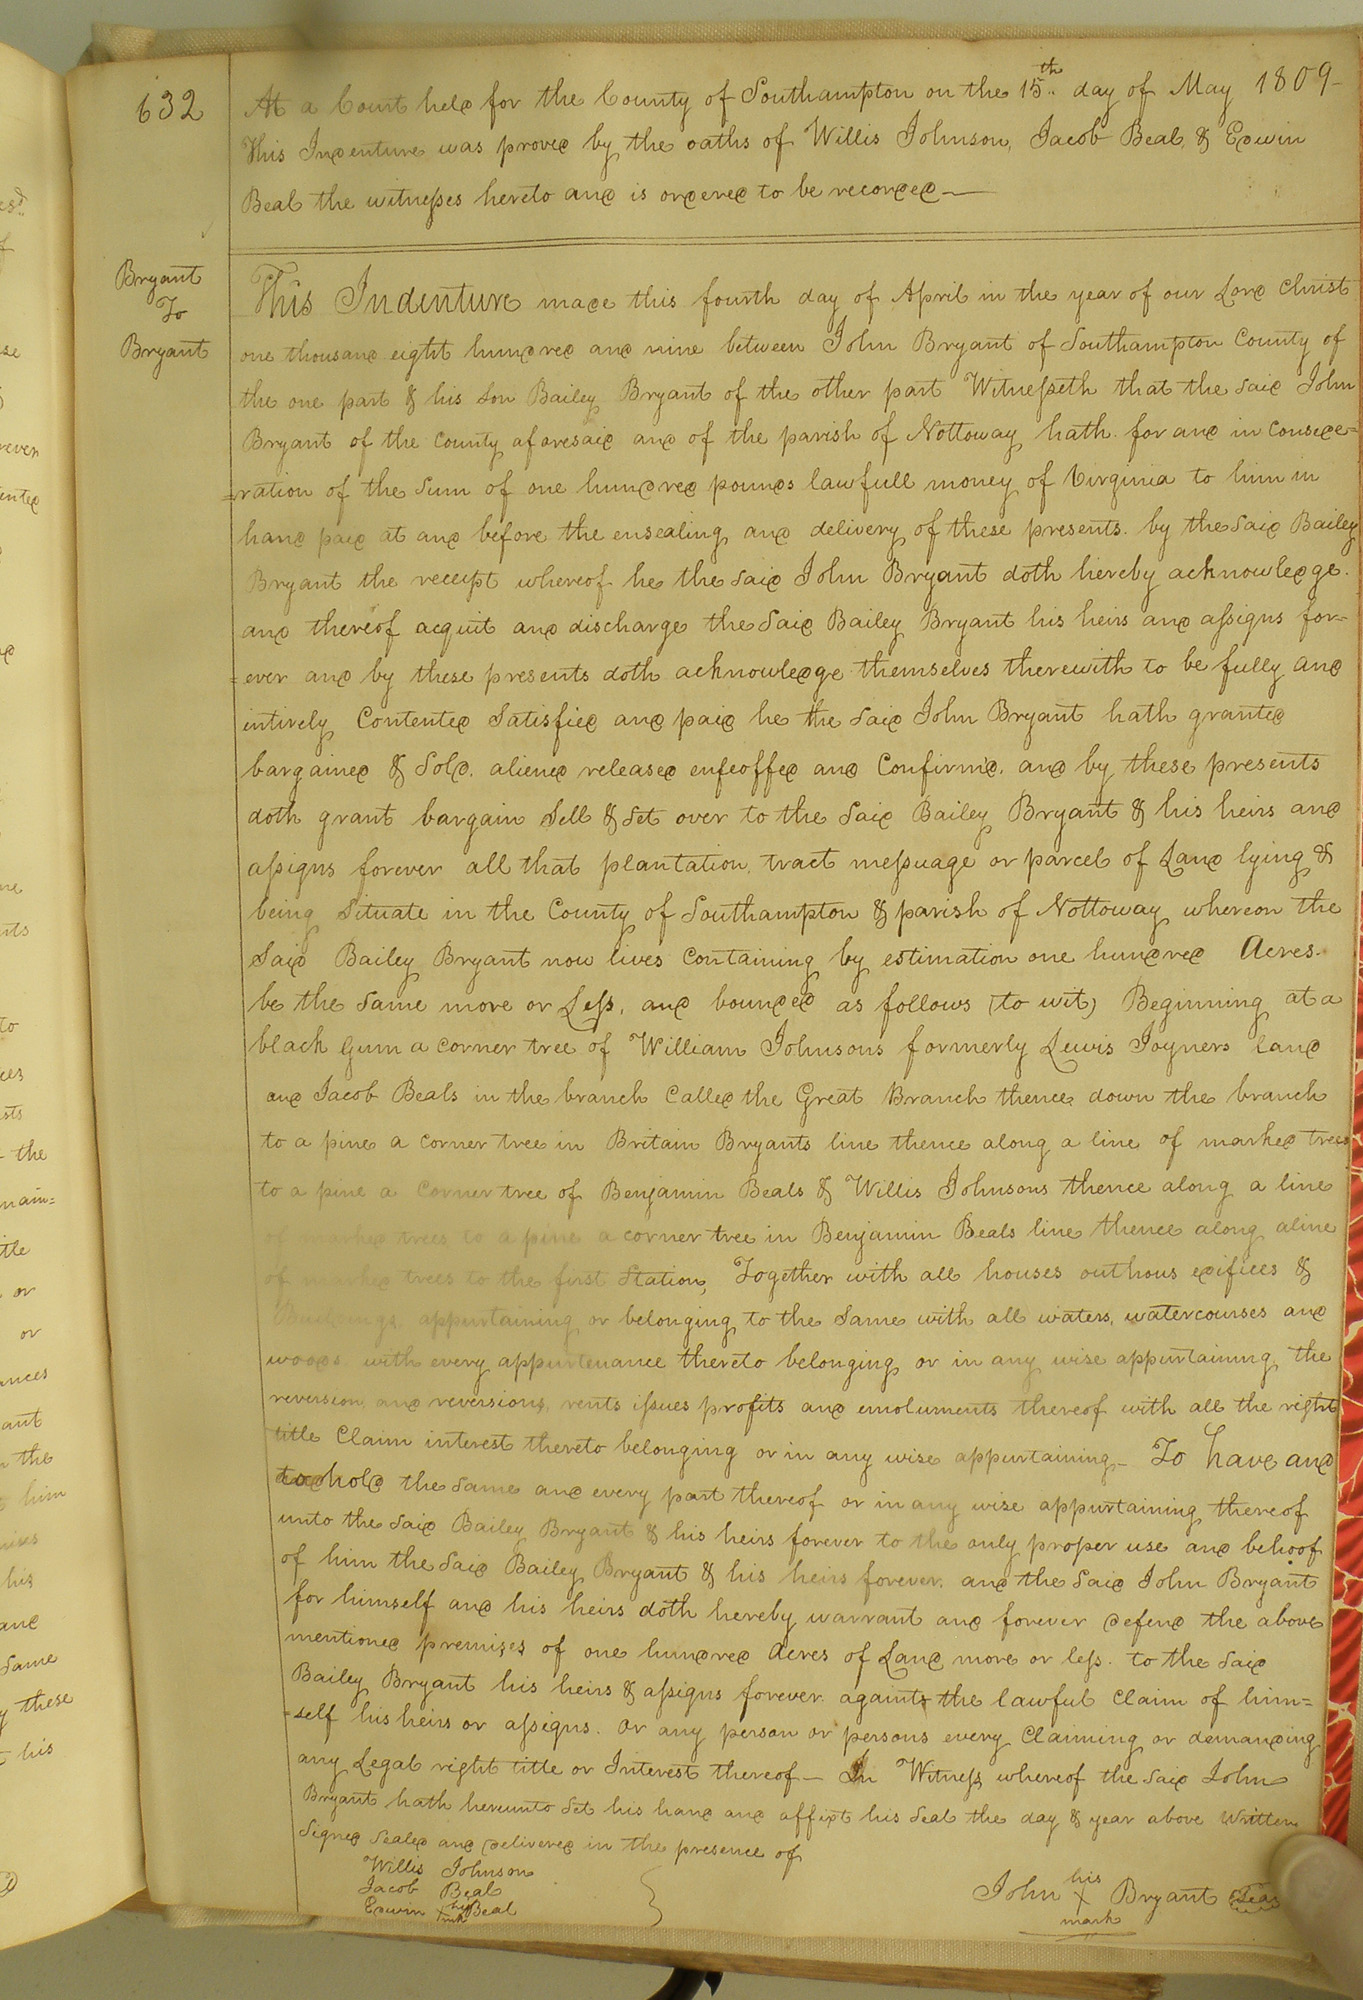 632
At a Court held for the County of Southampton on the 15th day of May 1809-
This Indenture was proved by the oaths of Willis Johnson, Jacob Beal, & Edwin
Beal the witnesses hereto and is ordered to be recorded—
Bryant
To
Bryant
This Indenture made this fourth day of April in the year of our Lord Christ
one thousand eight hundred and nine between John Bryant of Southampton County of
the one part & his son Bailey Bryant of the other part Witnesseth that the said John
Bryant of the County aforesaid and of the parish of Nottoway hath for and in Conside=
=ration of the Sum of one hundred pounds lawfull money of Virginia to him in
hand paid at and before the ensealing and delivery of these presents. by the said Bailey
Bryant the receipt whereof he the said John Bryant doth hereby acknowledge.
and thereof acquit and discharge the Said Bailey Bryant his heirs and assigns for-
=ever and by these presents doth acknowledge themselves therewith to be fully and
intirely Contented Satisfied and paid he the said John Bryant hath granted
bargained & Sold. aliened released enfeoffed and Confirmd. and by these presents
doth grant bargain Sell & Set over to the said Bailey Bryant & his heirs and
assigns forever all that plantation, tract messuage or parcel of Land lying &
being Situate in the County of Southampton & parish of Nottoway whereon the
Said Bailey Bryant now lives Containing by estimation one hundred Acres.
be the Same more or Less, and bounded as follows (to wit) Beginning at a
black Gum a corner tree of William Johnsons formerly Lewis Joyners land
and Jacob Beals in the branch Called the Great Branch thence down the branch
to a pine a corner tree in Britain Bryants line thence along a line of marked trees
to a pine a Corner tree of Benjamin Beals & Willis Johnsons thence along a line
of marked trees to a pine a corner tree in Benjamin Beals line thence along aline
of marked trees to the first Station, Together with all houses outhous edifices &
Buildings, appurtaining or belonging to the Same with all waters, watercourses and
woods. with every appurtenance thereto belonging or in any wise appurtaining the
reversion and reversions, rents issues profits and emoluments thereof with all the right
title Claim interest thereto belonging or in any wise appurtaining- To have and
to hold the same and every part thereof or in any wise appurtaining thereof
unto the Said Bailey Bryant & his heirs forever to the only proper use and behoof
of him the Said Bailey Bryant & his heirs forever. and the Said John Bryant
for himself and his heirs doth hereby warrant and forever defend the above
mentioned premises of one hundred Acres of Land more or less. to the Said
Bailey Bryant his heirs & assigns forever. against the lawful Claim of him=
=self his heirs or assigns. or any person or persons every Claiming or demanding
any Legal right title or Interest thereof- In Witness whereof the said John
Bryant hath hereunto Set his hand and affixt his Seal the day & year above Written
Signed Sealed and Delivered in the presence of
Willis Johnson
Jacob Beal
Edwin his X mk Beal
John his X mark Bryant